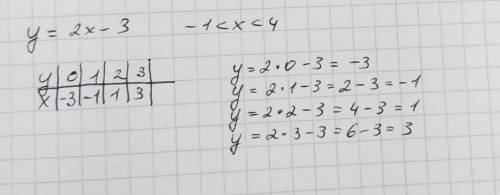 y = 2x - 3    -1 < x < 4
y | 0 | 1 | 2 | 3
x | -3 | -1 | 1 | 3
y = 2 · 0 - 3 = -3
y = 2 · 1 - 3 = 2 - 3 = -1
y = 2 · 2 - 3 = 4 - 3 = 1
y = 2 · 3 - 3 = 6 - 3 = 3